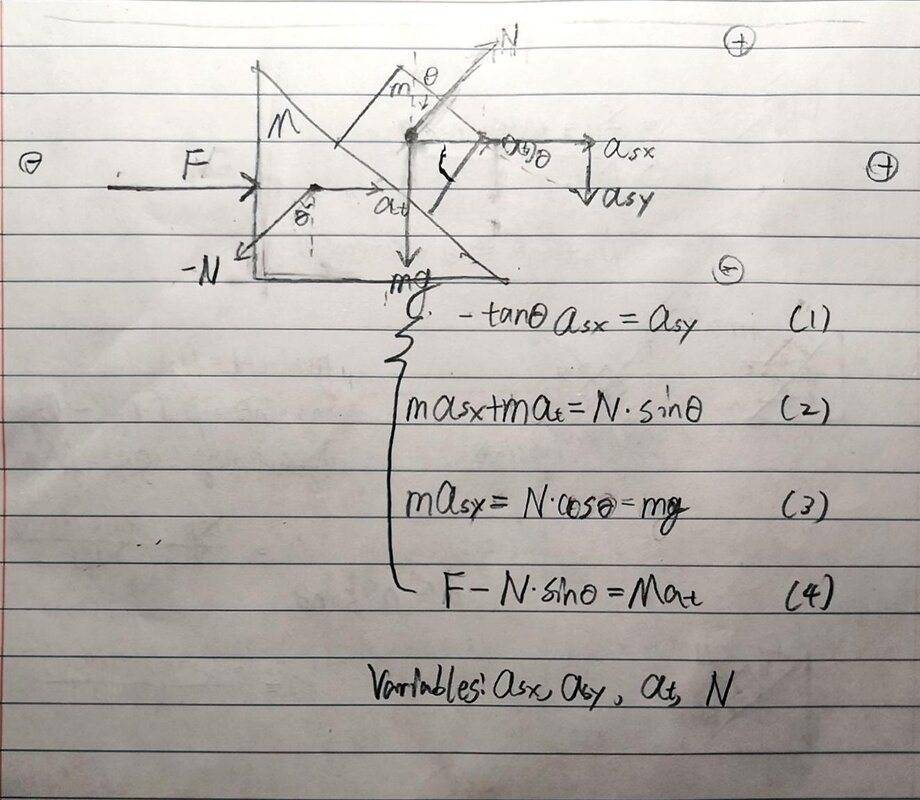 N
⊕
m θ
M
⊖ F a_sx ⊕
θ a_t a_sy
-N
mg ⊖
-tanθ a_sx = a_sy (1)
m a_sx + m a_t = N·sinθ (2)
m a_sx = N·cosθ - mg (3)
F - N·sinθ = M a_t (4)
Variables: a_sx, a_sy, a_t, N